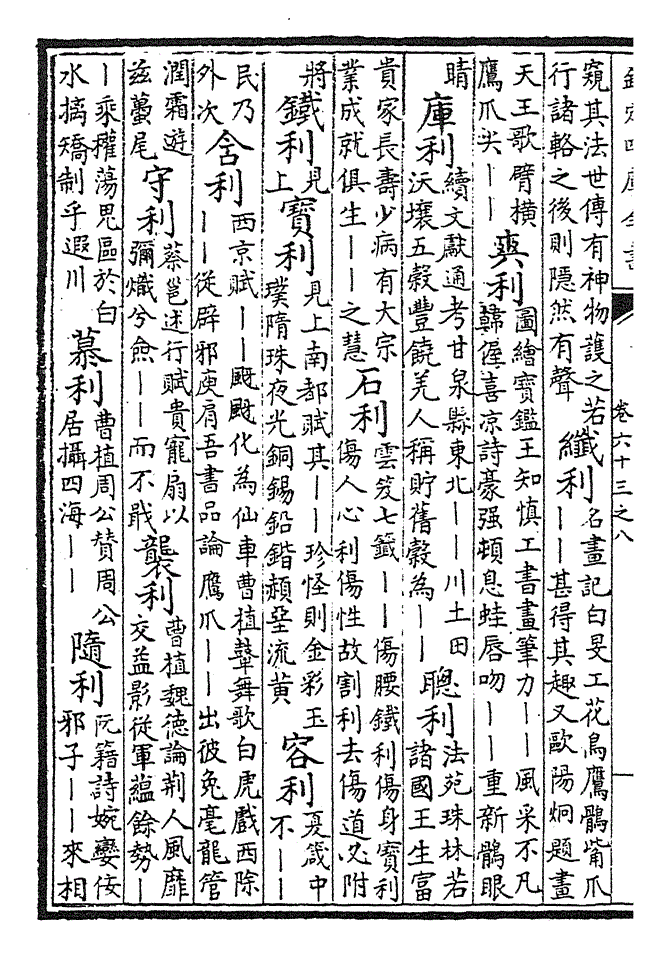 欽定四庫全書 卷六十三之八
窺其法世傳有神物護之若行諸輅之後則隱然有聲 纎利 名畫記白旻工花鳥鷹鶻觜爪——甚得其趣又歐陽炯題畫
天王歌臂橫鷹爪尖—— 爽利 圖繪寶鑑王知慎工書畫筆力——風采不凡韓偓喜凉詩豪强頓息蛙唇吻——重新鶻眼
睛 庫利 續文獻通考甘泉縣東北——川土田沃壤五穀豐饒羌人稱貯舊穀為—— 聰利 法苑珠林若諸國王生富
貴家長壽少病有大宗業成就俱生——之慧 石利 雲笈七籤——傷腰鐵利傷身寶利傷人心利傷性故割利去傷道必附
將 鐵利 見上 寶利 見上南都賦其——珍怪則金彩玉璞隋珠夜光銅錫鉛鍇赬堊流黄 容利 戞箴中不——
民乃外次 舍利 西京賦——颬颬化為仙車曹植鼙舞歌白虎戲西除——從辟邪庾肩吾書品論鷹爪——出彼兔毫龍管
潤霜遊兹蠆尾 守利 蔡邕述行賦貴寵扇以彌熾兮僉——而不戢 襲利 曹植魏德論荆人風靡交益影從軍蘊餘勢—
—乘櫂蕩鬼區於白水擒矯制乎遐川 慕利 曹植周公贊周公居攝四海—— 隨利 阮籍詩婉孌佞邪子——來相